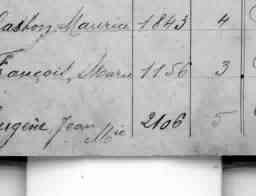 Gaston, Maurice 1843 4
François, Marie 1856 3
Eugène, Jean Mie 2106 5